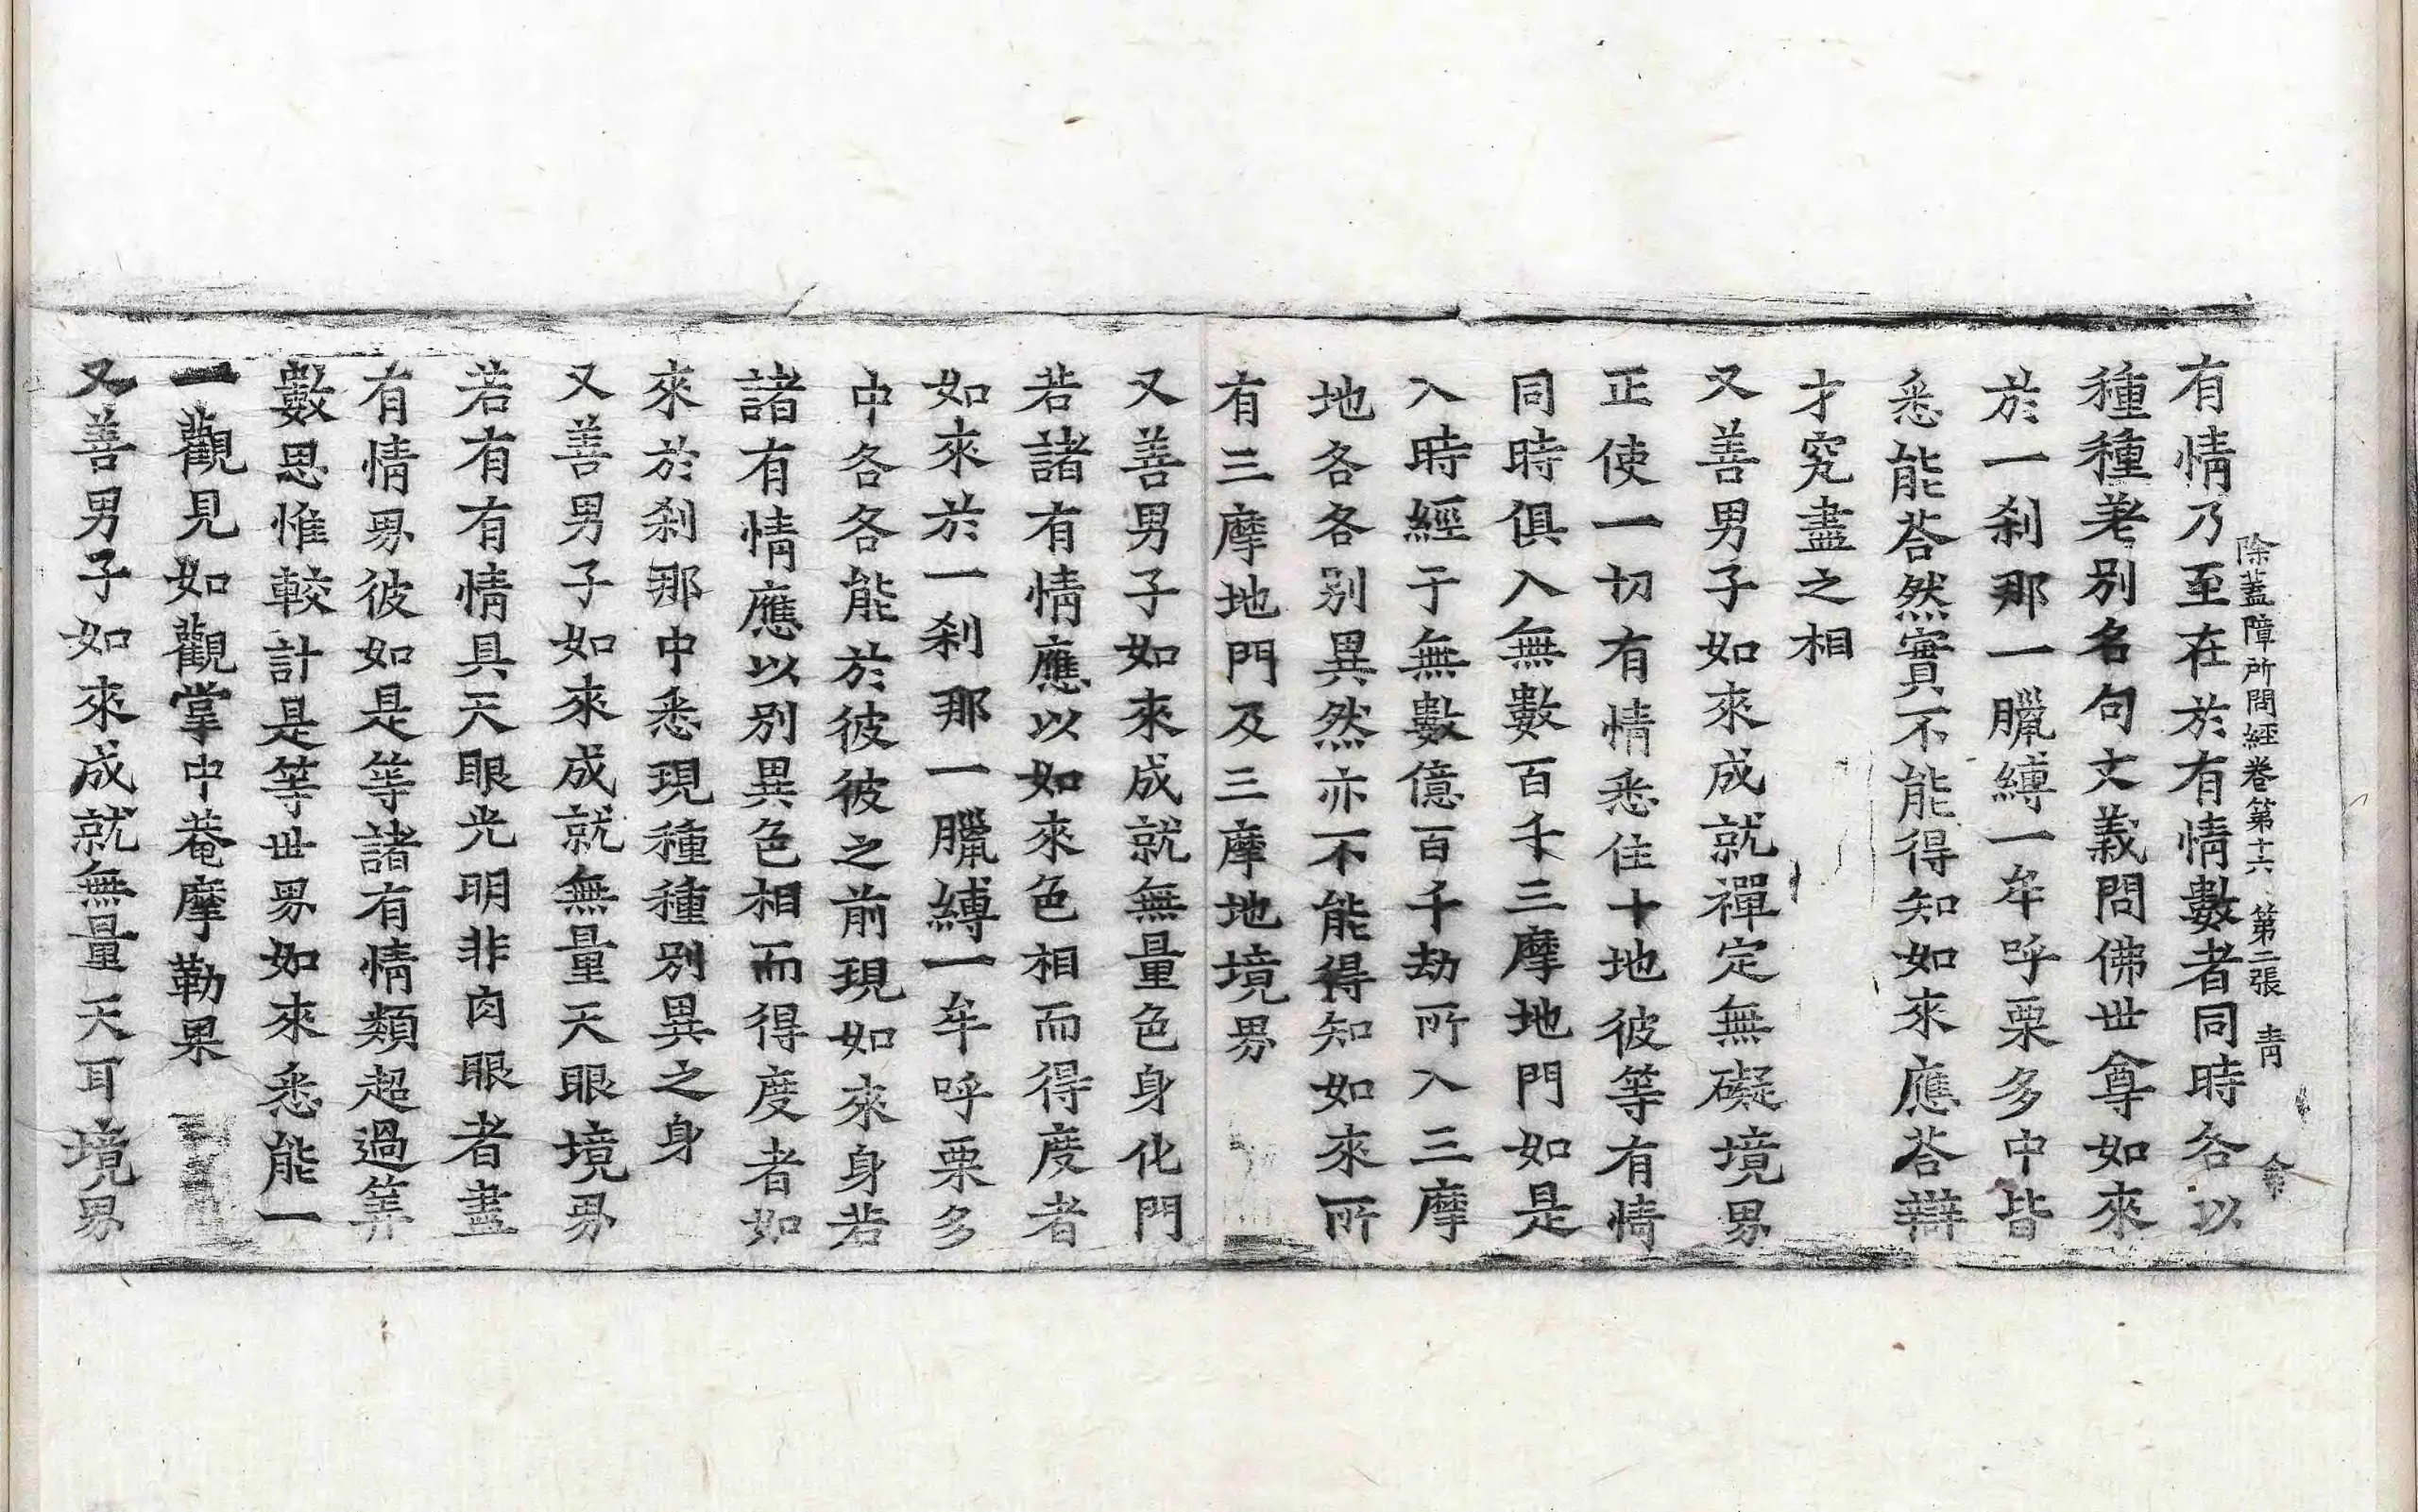 除蓋障所問經卷第十六　第二張　青
有情乃至在於有情數者同時各以
種種差別名句文義問佛世尊如來
於一刹那一臘縛一牟呼栗多中皆
悉能荅然實不能得知如來應荅辯
才究盡之相
又善男子如來成就禪定無礙境界
正使一切有情悉住十地彼等有情
同時俱入無數百千三摩地門如是
入時經于無數億百千劫所入三摩
地各各別異然亦不能得知如來所
有三摩地門及三摩地境界
又善男子如來成就無量色身化門
若諸有情應以如來色相而得度者
如來於一刹那一臘縛一牟呼栗多
中各各能於彼彼之前現如來身若
諸有情應以別異色相而得度者如
來於刹那中悉現種種別異之身
又善男子如來成就無量天眼境界
若有有情具天眼光明非肉眼者盡
有情界彼如是等諸有情類超過筭
數思惟較計是等世界如來悉能一
一觀見如觀掌中菴摩勒果
又善男子如來成就無量天耳境界